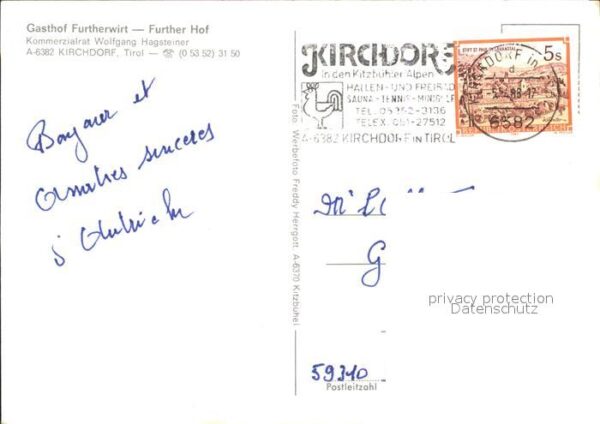 Gasthof Furtherwirt — Further Hof
Kommerzialrat Wolfgang Hagsteiner
A-6382 KIRCHDORF, Tirol — ☏ (0 53 52) 31 50
Bonjour et
sinceres
d'Autriche
Foto Werbefoto Freddy Herrgott, A-6370 Kitzbühel
KIRCHDORF
in den Kitzbühler Alpen
HALLEN- UND FREIBAD
SAUNA - TENNIS - MINIGOLF
TEL. 05352-3136
TELEX. 051-27512
A-6382 KIRCHDORF IN TIROL
STIFT ST. PAUL IM LAVANTTAL
5s
KIRCHDORF in
6382
G
privacy protection
Datenschutz
59310
Postleitzahl